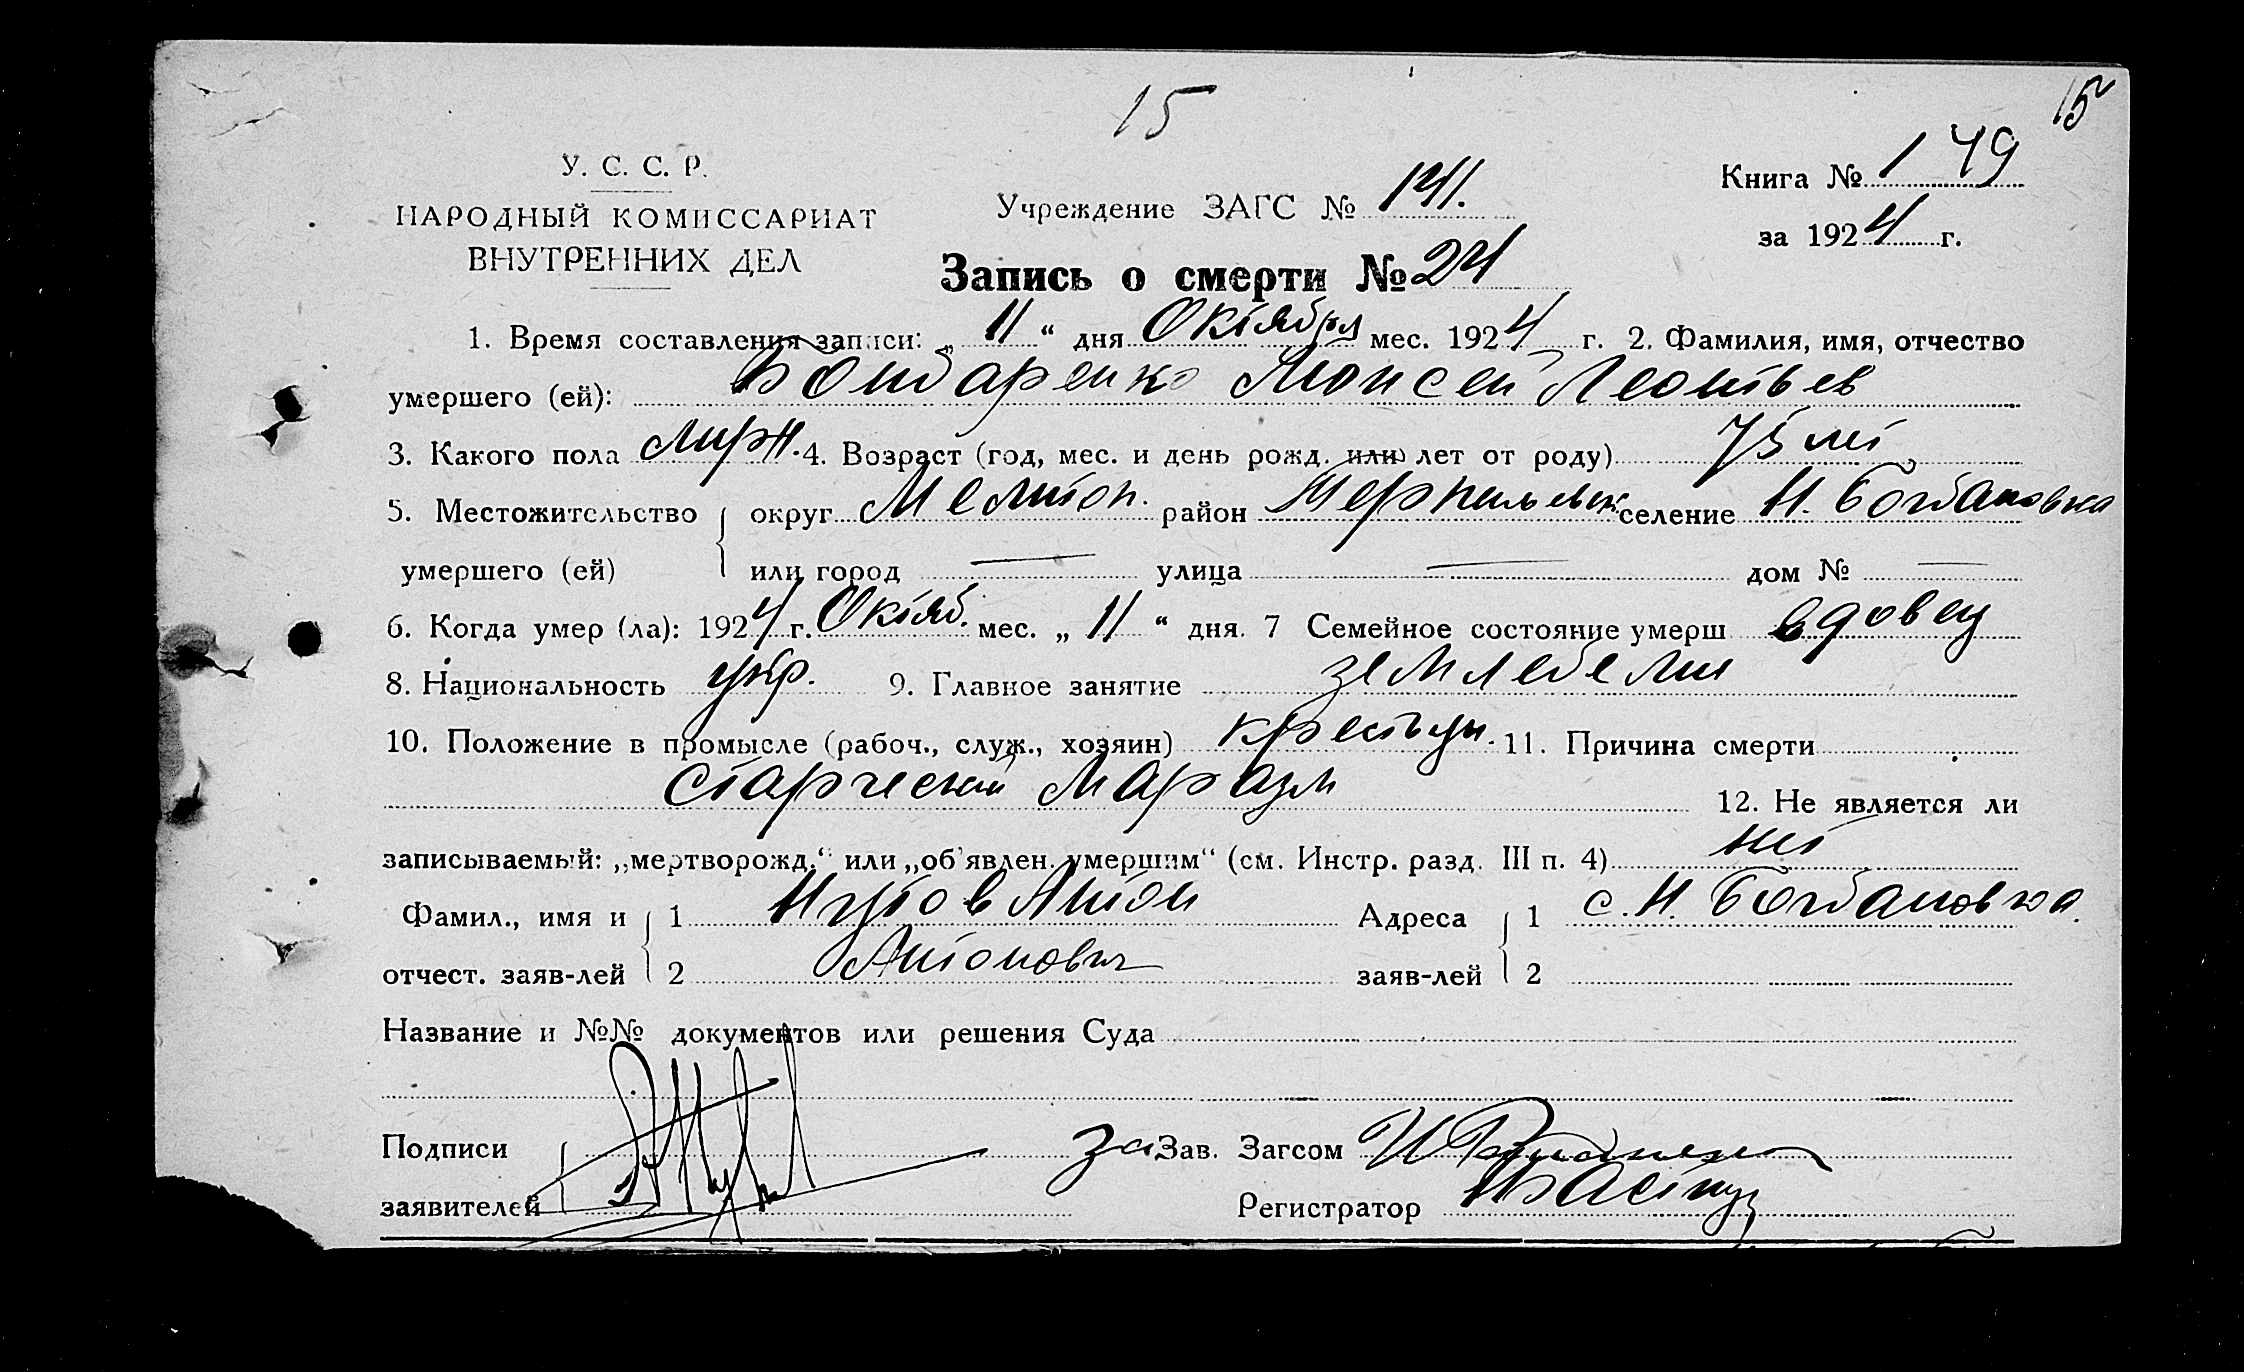 15
15
У. С. С. Р.
НАРОДНЫЙ КОМИССАРИАТ
ВНУТРЕННИХ ДЕЛ
Учреждение ЗАГС № 141.
Книга № 1 49
за 1924 г.
Запись о смерти № 24
1. Время составления записи: „ 11 “ дня Октября мес. 1924 г. 2. Фамилия, имя, отчество
умершего (ей): Бондаренко Моисей Леонтьев
3. Какого пола 4. Возраст (год, мес. и день рожд. или лет от роду) 75 лет
5. Местожительство округ Мелитоп. район селение Н. Богдановка
умершего (ей) или город — улица — дом № —
6. Когда умер (ла): 1924 г. Октяб. мес. „ 11 “ дня. 7 Семейное состояние умерш вдовец
8. Национальность укр. 9. Главное занятие земледелия
10. Положение в промысле (рабоч., служ., хозяин) крестьян. 11. Причина смерти
старческий маразм 12. Не является ли
записываемый: „мертворожд.“ или „об'явлен. умершим“ (см. Инстр. разд. III п. 4) нет
Фамил., имя и 1 Антон Адреса 1 с. Н. Богдановка.
отчест. заяв-лей 2 Антонович заяв-лей 2
Название и №№ документов или решения Суда
Подписи за Зав. Загсом
заявителей Регистратор